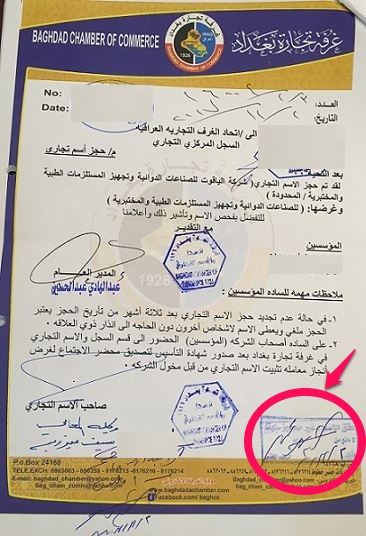 BAGHDAD CHAMBER OF COMMERCE
غرفة تجارة بغداد
1926
No:
العدد:
Date:
التاريخ:
الى / اتحاد الغرف التجاريه العراقيه
السجل المركزي التجاري
م/ حجز أسم تجاري
بعد التحية
لقد تم حجز الاسم التجاري ( شركة الياقوت للصناعات الدوائية وتجهيز المستلزمات الطبية
والمختبرية / المحدودة )
وغرضها: ( للصناعات الدوائية وتجهيز المستلزمات الطبية والمختبرية )
للتفضل بفحص الاسم وتأشير ذلك وأعلامنا
مع التقدير
المؤسسين
المدير العـــام
عبدالهادي عبدالحسين
ملاحظات مهمه للساده المؤسسين :
١- في حالة عدم تجديد حجز الاسم التجاري بعد ثلاثة أشهر من تأريخ الحجز يعتبر
الحجز ملغي ويعطى الاسم لاشخاص آخرون دون الحاجه الى انذار ذوي العلاقه .
٢- على الساده أصحاب الشركه (المؤسسين) الحضور الى قسم السجل والاسم التجاري
في غرفة تجارة بغداد بعد صدور شهادة التأسيس لتصديق محضر الاجتماع لغرض
أنجاز معامله تثبيت الاسم التجاري من قبل مخول الشركه .
صاحب الاسم التجاري
P.o.Box 24168
TELE.EXCH: 8863063 - 886359 - 8176213 - 8176212 - 8176211
E-mail: baghdad_chamber@yahoo.com
bag_cham_comm@yahoo.com
www.baghdadchamber.com
facebook.com/baghcc